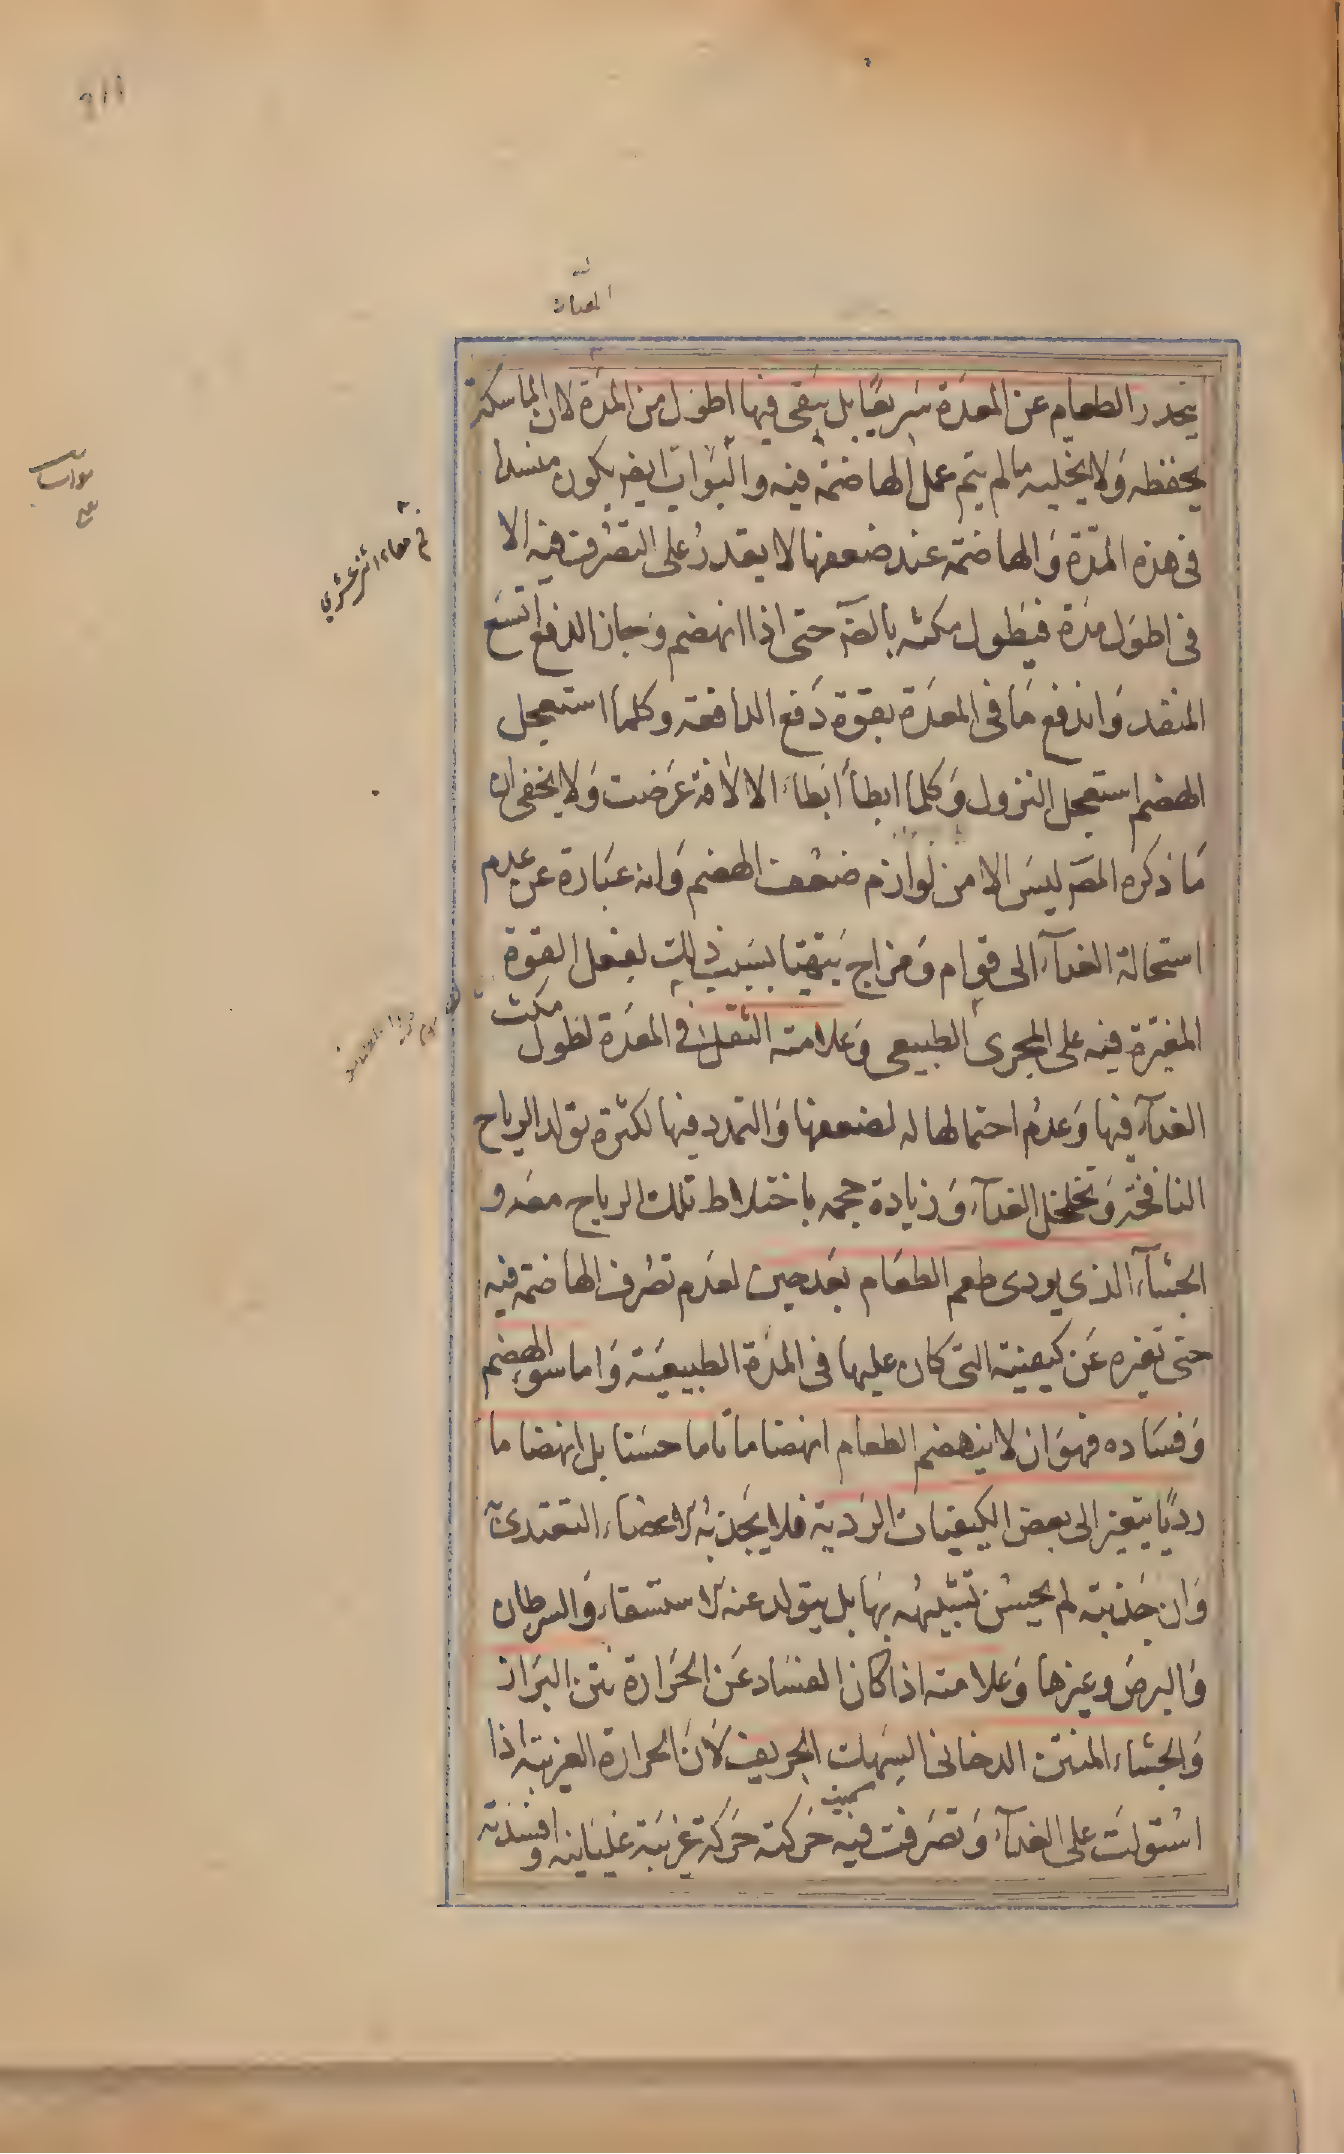 المعتاد
ينحدر الطعام عن المعدة سريعًا بل يبقى فيها اطول من المدة لان الماسكة
يحفظه ولا يخليه مالم يتم عمل الهاضمة فيه والبواب ايضا يكون منسدا
فى هذه المدة والهاضمة عند ضعفها لا يقدر على التصرف فيه الا
فى اطول مدة فيطول مكثه بالضرورة حتى اذا انهضم وجاز الدفع اتسع
المنفذ واندفع ما فى المعدة بقوة دفع الدافعة وكلما استعجل
الهضم استعجل النزول وكلما ابطأ ابطاء الا لآفة عرضت ولا يخفى ان
ما ذكره المصـ ليس الا من لوازم ضعف الهضم وانه عبارة عن عدم
استحالة الغدآء الى قوام ومزاج يتهيا بسبب ذلك لفعل القوة
المغيّرة فيه على المجرى الطبيعى وعلامته الثقل فى المعدة لطول مكث
الغدآء فيها وعدم احتمالها له لضعفها والتمدد فيها لكثرة تولد الرياح
النافخة وتخلخل الغدآء وزيادة حجمه باختلاط تلك الرياح معه و
الجشآء الذي يودى طعم الطعام بعد حين لعدم تصرف الهاضمة فيه
حتى تغيره عن كيفيته التى كان عليها فى المدة الطبيعية واما سوء الهضم
وفساده فهو ان لا ينهضم الطعام انهضاما تاما حسنا بل انهضاما
رديًا يتغير الى بعض الكيفيات الردية فلا يجذبه الاعضاء التغتدى به
وان جذبته لم يحسن تشبيهه بها بل يتولد عنه الاستسقاء والسرطان
والبرص وغيرها وعلامته اذا كان الفساد عن الحرارة نتن البراز
والجشاء المنتن الدخانى السهك الحريف لان الحرارة الغريبة اذا
استولت على الغدآء وتصرفت فيه حركته حركة غريبة غليانيه وافسدته